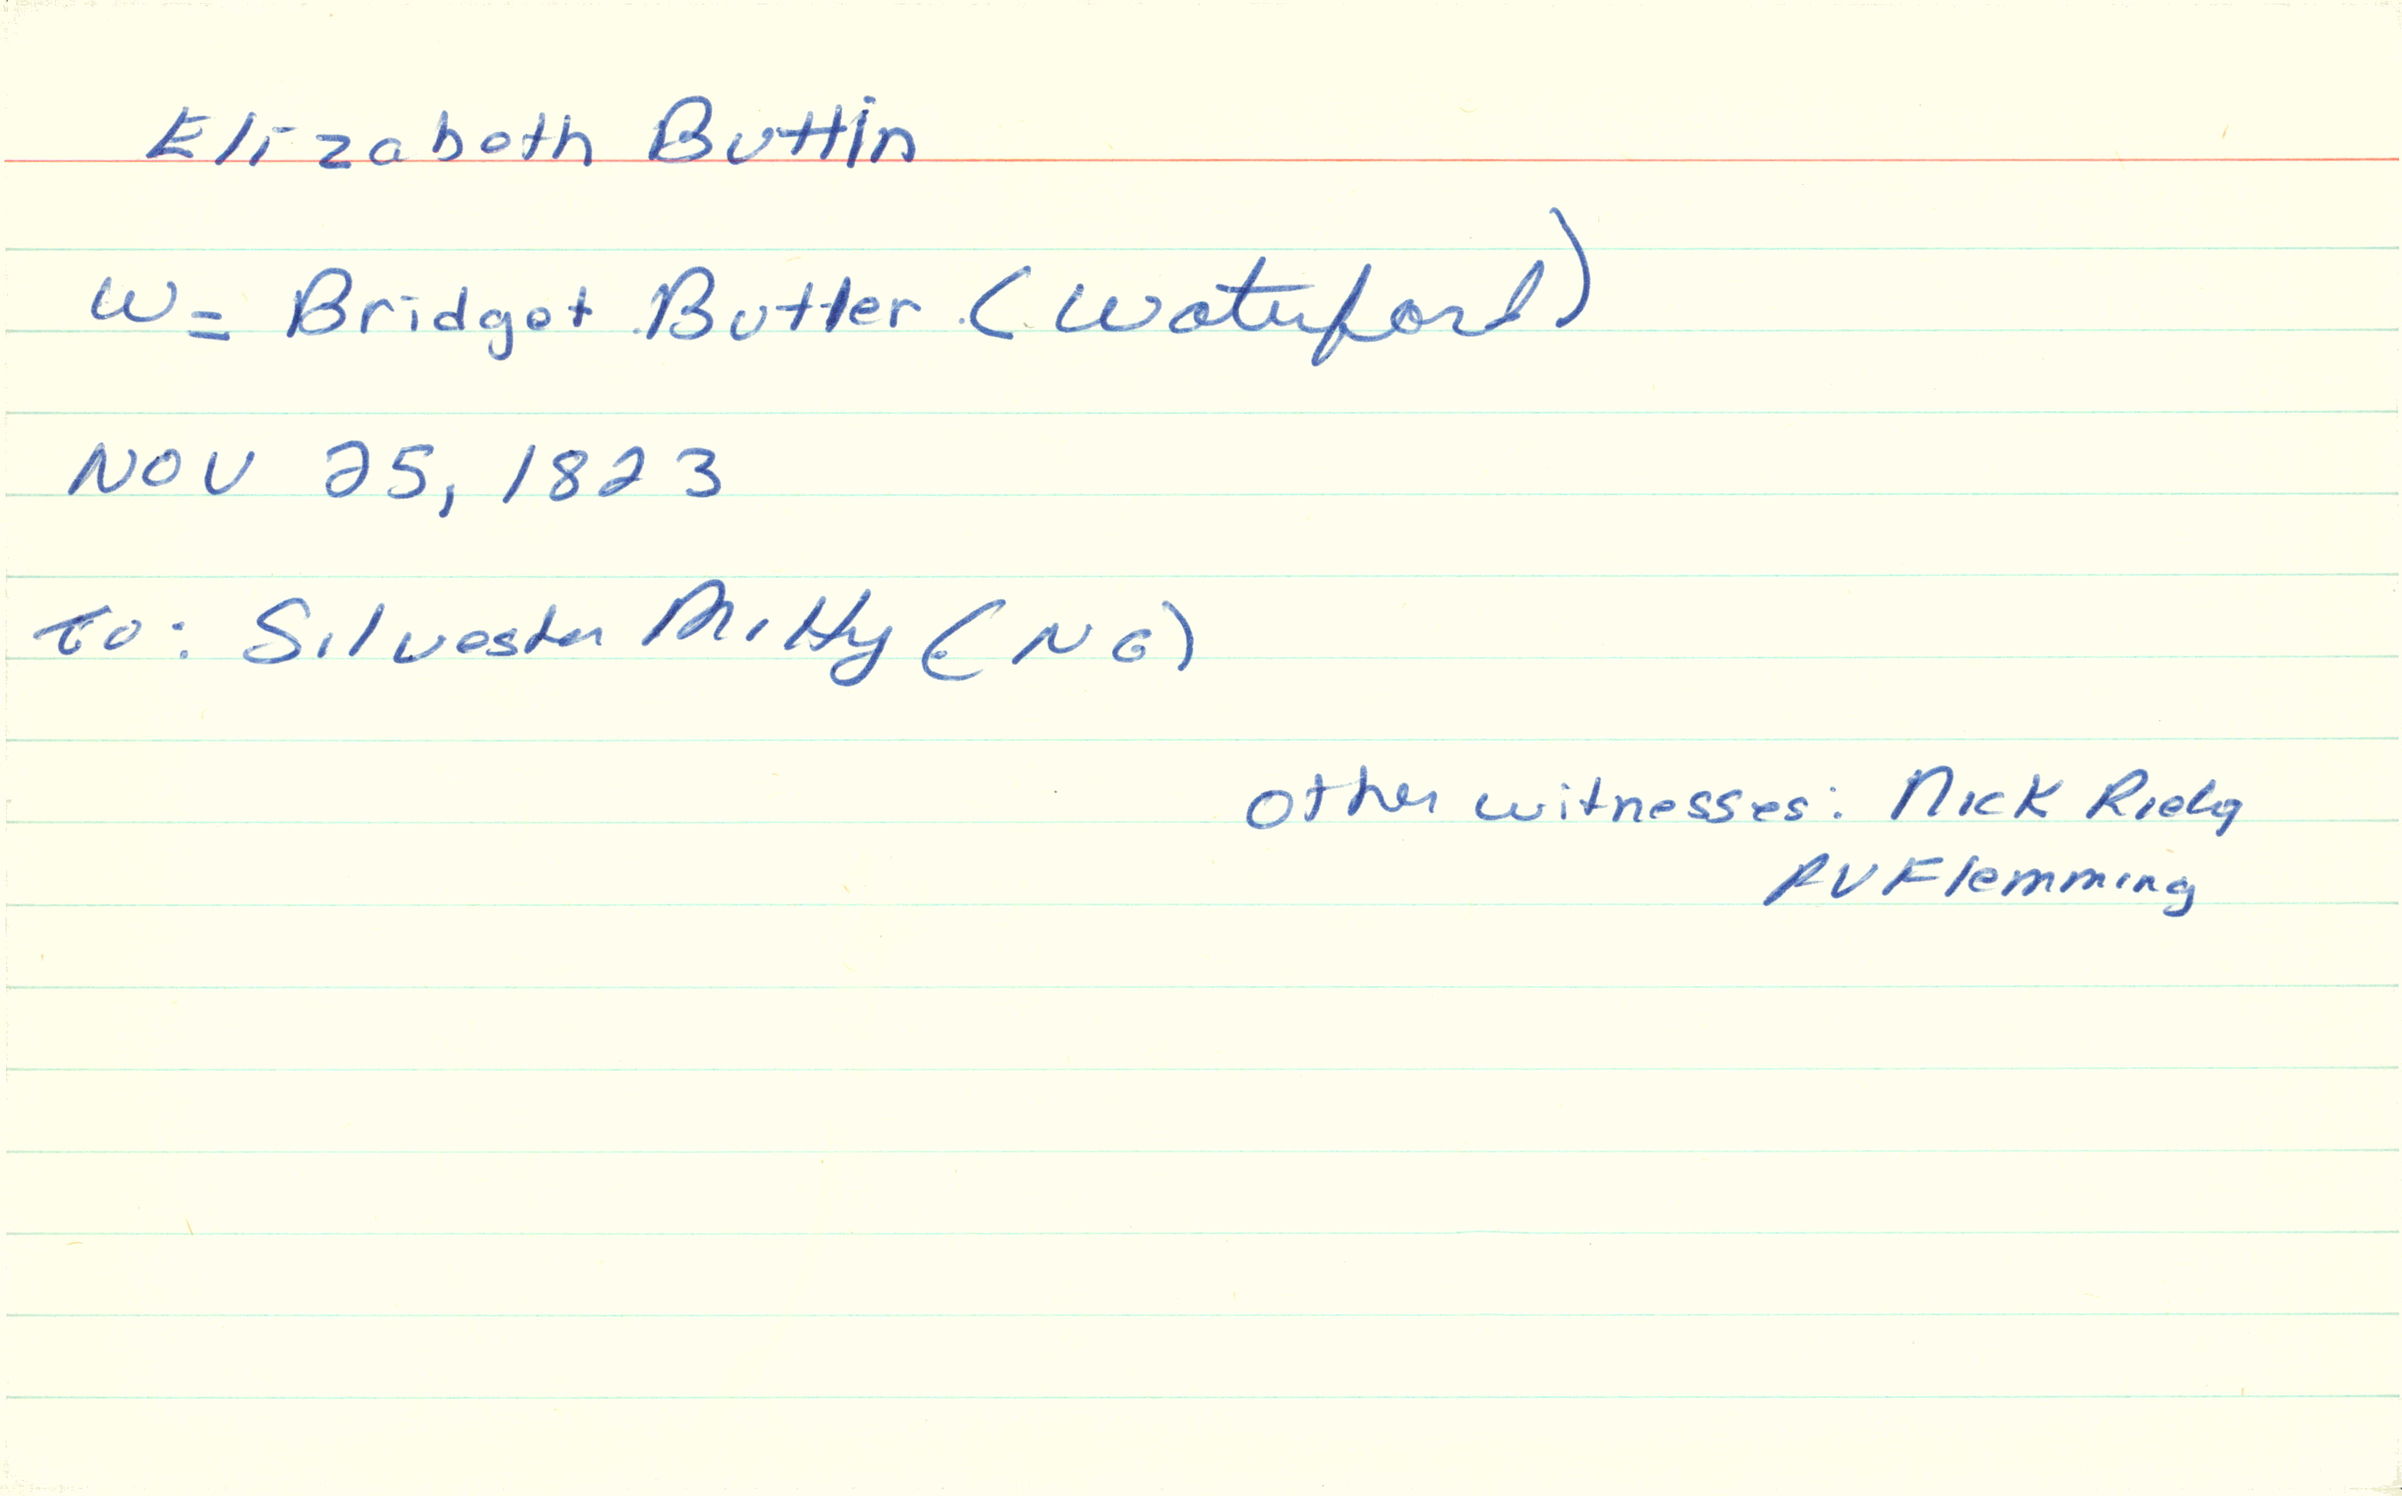 Elizabeth Buttin
W = Bridget Butler (Waterford)
NOV 25, 1823
TO: Silvester Mitty (NG)
Other witnesses: Nick
PV Flemming